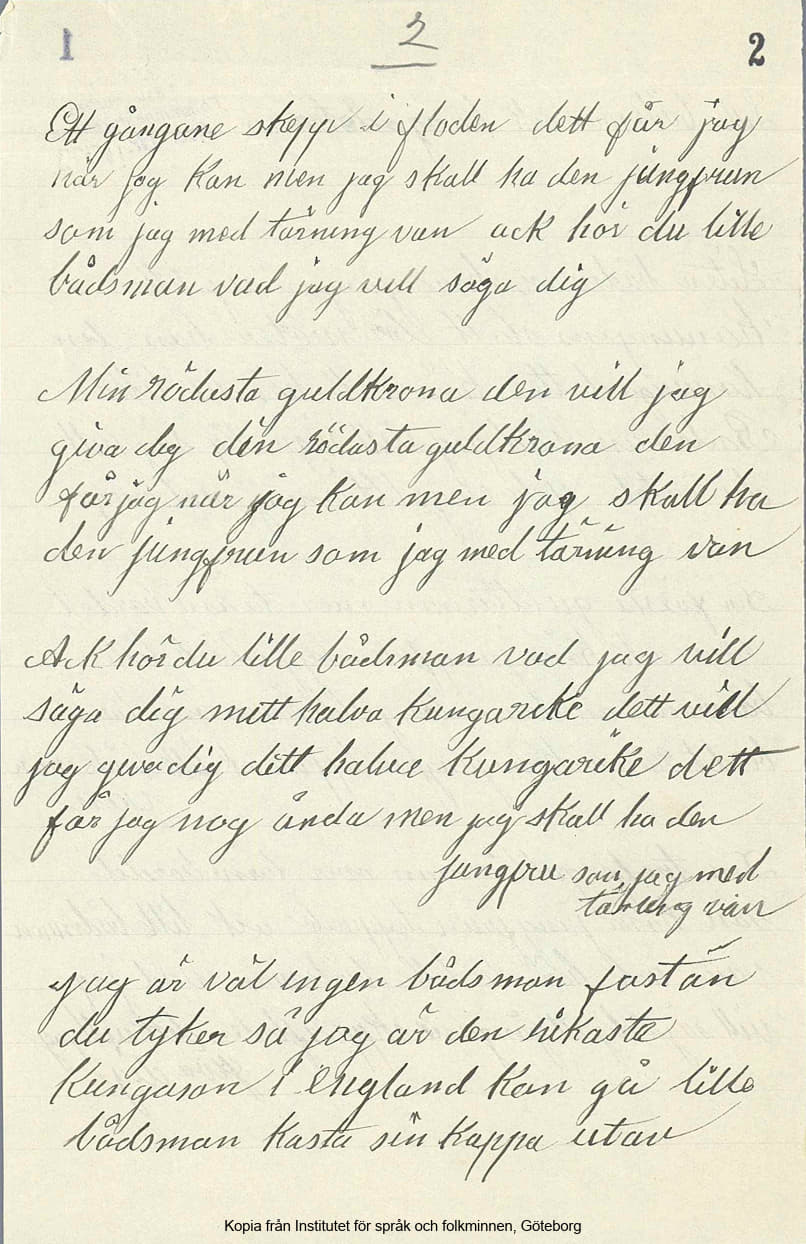 1 2 2
Ett gångane skepp i floden dett får jag
när jag kan men jag skall ha den jungprun
som jag med tärning van ack hör du lille
bådsman vad jag vill säga dig
Min rödasta guldkrona den vill jag
giva dig den rödasta guldkrona den
får jag när jag kan men jag skall ha
den jungprun som jag med tärning van
Ack hör du lille bådsman vad jag vill
säga dig mitt halva kungarike dett vill
jag giva dig dett halva kungarike dett
får jag nog ända men jag skall ha den
jungpru som jag med
tärning van
Jag är väl ingen bådsman fast än
du tyker så jag är den rikasta
kungason i england kan gå lille
bådsman kasta sin kappa utav
Kopia från Institutet för språk och folkminnen, Göteborg